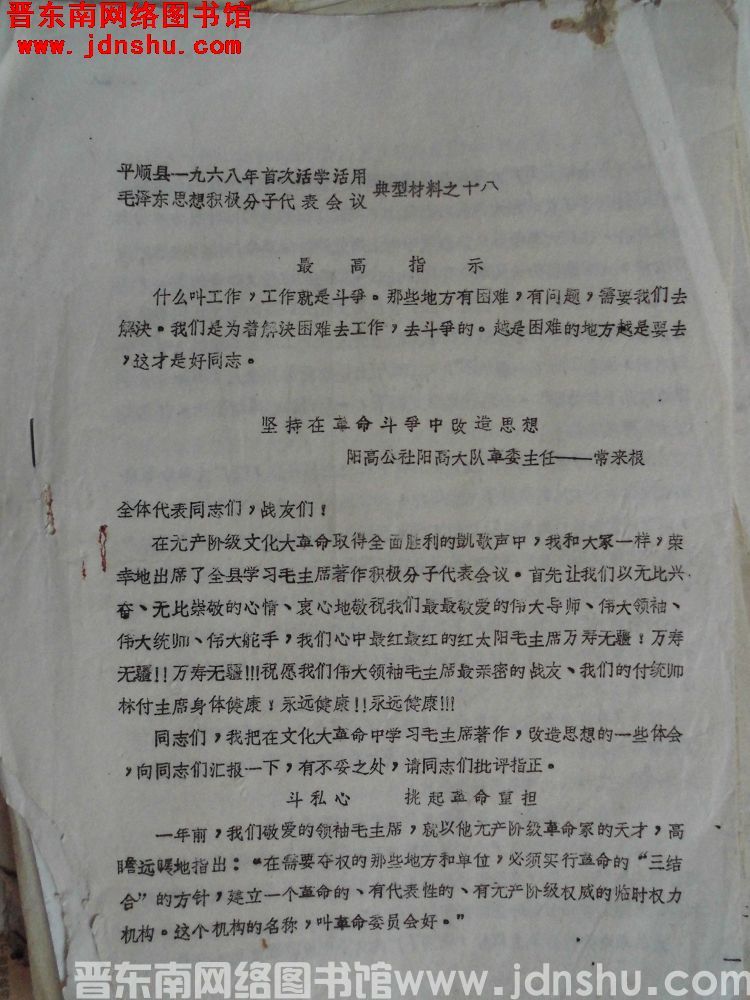 晋东南网络图书馆
www.jdnshu.com
平顺县一九六八年首次活学活用
毛泽东思想积极分子代表会议
典型材料之十八
最高指示
什么叫工作，工作就是斗爭。那些地方有困难，有问题，需要我们去
解决。我们是为着解决困难去工作，去斗爭的。越是困难的地方越是要去
，这才是好同志。
坚持在革命斗爭中改造思想
阳高公社阳高大队革委主任——常来根
全体代表同志们，战友们！
在无产阶级文化大革命取得全面胜利的凱歌声中，我和大家一样，荣
幸地出席了全县学习毛主席著作积极分子代表会议。首先让我们以无比兴
奋、无比崇敬的心情、衷心地敬祝我们最最敬爱的伟大导师、伟大领袖、
伟大统帅、伟大舵手，我们心中最红最红的红太阳毛主席万寿无疆！万寿
无疆!!万寿无疆!!!祝愿我们伟大领袖毛主席最亲密的战友、我们的付统帅
林付主席身体健康！永远健康!!永远健康!!!
同志们，我把在文化大革命中学习毛主席著作，改造思想的一些体会
，向同志们汇报一下，有不妥之处，请同志们批评指正。
斗私心　挑起革命重担
一年前，我们敬爱的领袖毛主席，就以他无产阶级革命家的天才，高
瞻远瞩地指出：“在需要夺权的那些地方和单位，必须实行革命的“三结
合”的方针，建立一个革命的、有代表性的、有无产阶级权威的临时权力
机构。这个机构的名称，叫革命委员会好。”
晋东南网络图书馆www.jdnshu.com